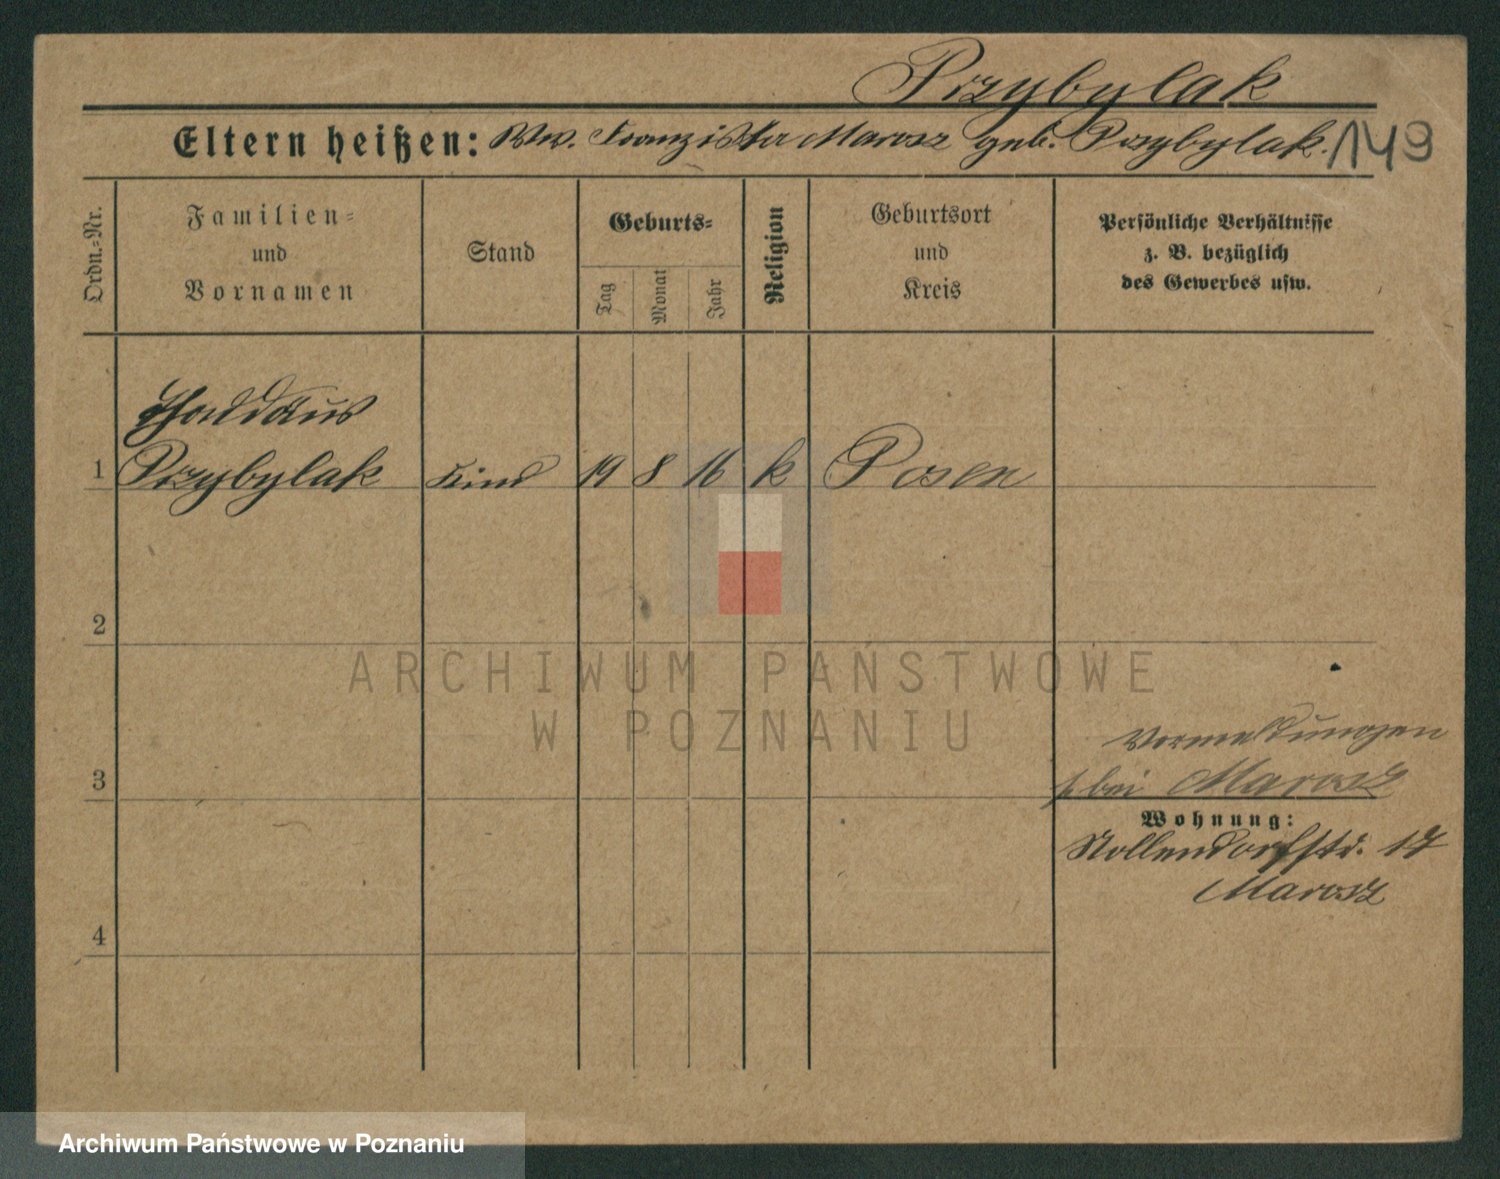 Przybylak
Eltern heißen: Ww. Franziska Marosz geb. Przybylak. 149
Ordn.-Nr.
Familien-
und
Vornamen
Stand
Geburts-
Tag
Monat
Jahr
Religion
Geburtsort
und
Kreis
Persönliche Verhältnisse
z. B. bezüglich
des Gewerbes usw.
Thaddäus
1 Przybylak Kind 19 8 16 k Posen
2
ARCHIWUM PAŃSTWOWE
W POZNANIU
Vormeldungen
3 s. bei Marosz
Wohnung:
Nollendorfstr. 17
Marosz
4
Archiwum Państwowe w Poznaniu